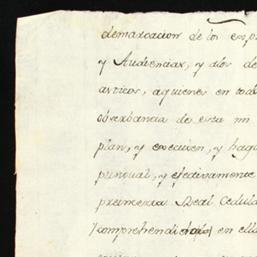 demarcacion de los esp
y Audiencias, y dios de
asticos, aquienes en tod
observancia de esta mi
plan, y executen, y haga
puntual, y efectivamente
preinserta Real Cedula
comprehendidos en ell